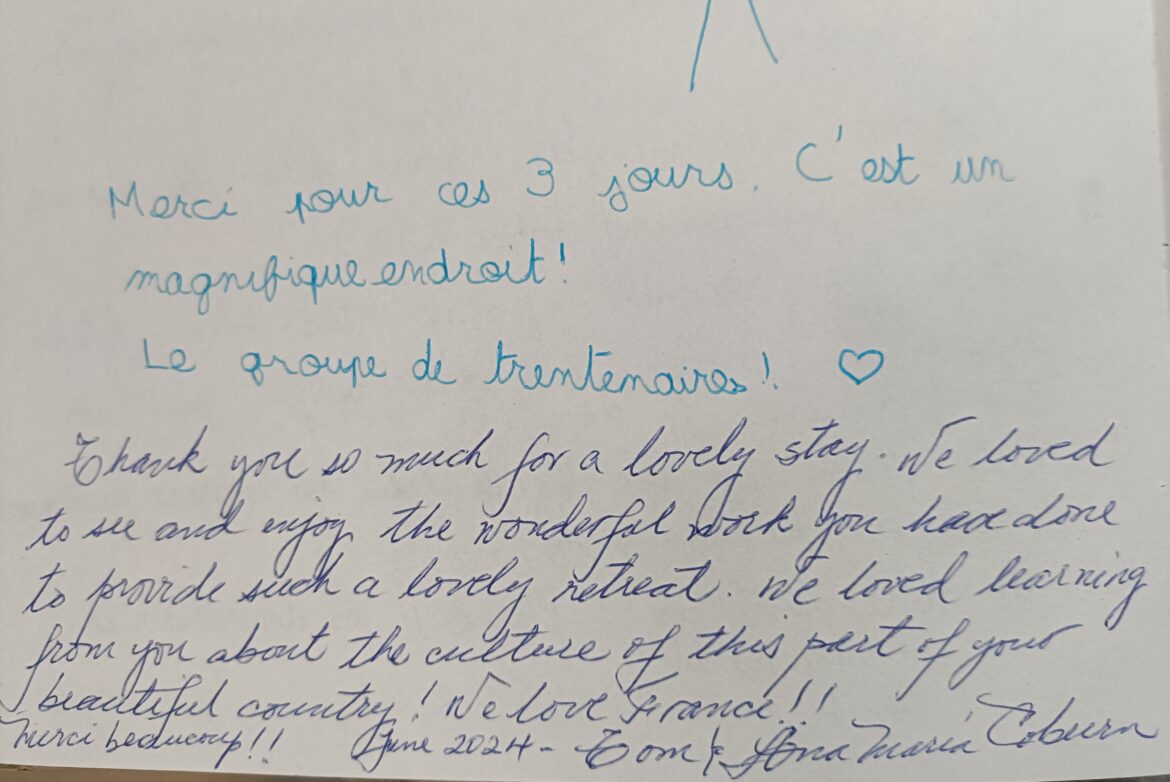 Merci pour ces 3 jours. C'est un
magnifique endroit!
Le groupe de trentenaires! ♡
Thank you so much for a lovely stay. We loved
to see and enjoy the wonderful work you have done
to provide such a lovely retreat. We loved learning
from you about the culture of this part of your
beautiful country! We love France!!
Merci beaucoup!! June 2024 - Tom & Ana Maria Coburn